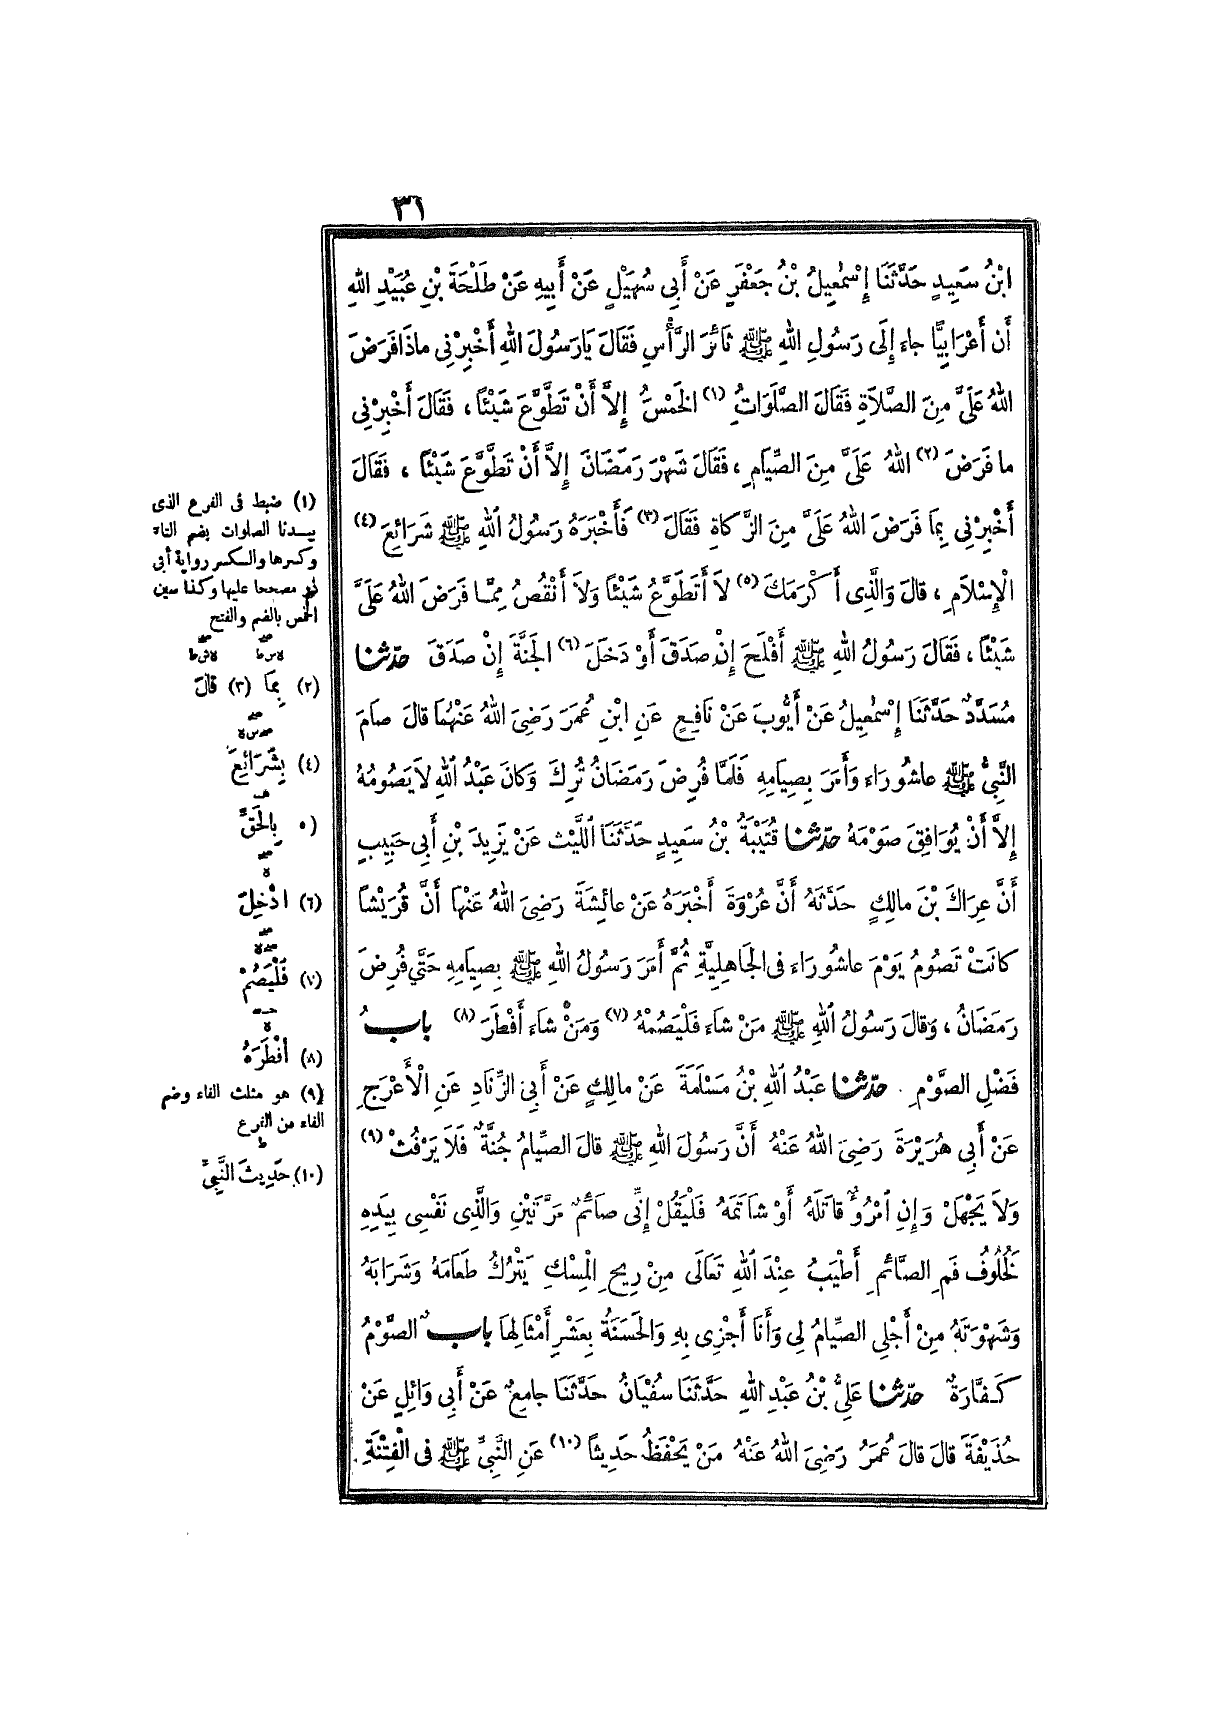 ٣١
ابْنُ سَعِيدٍ حَدَّثَنَا إِسْمٰعِيلُ بْنُ جَعْفَرٍ عَنْ أَبِي سُهَيْلٍ عَنْ أَبِيهِ عَنْ طَلْحَةَ بْنِ عُبَيْدِ اللهِ
أَن أَعْرَابِيًّا جاء إِلَى رَسُولِ اللهِ ﷺ ثَائِرَ الرَّأْسِ فَقَالَ يَارَسُولَ اللهِ أَخْبِرْنِي ماذَا فَرَضَ
اللهُ عَلَىَّ مِنَ الصَّلاَةِ فَقَالَ الصَّلَوَاتُِ (١) الخَمْسُ إِلاَّ أَنْ تَطَوَّعَ شَيْئًا ، فَقَالَ أَخْبِرْنِي
ما فَرَضَ (٢) اللهُ عَلَىَّ مِنَ الصِّيَامِ ، فَقَالَ شَهْرَ رَمَضَانَ إِلاَّ أَنْ تَطَوَّعَ شَيْئًا ، فَقَالَ
أَخْبِرْنِي بِمَا فَرَضَ اللهُ عَلَىَّ مِنَ الزَّكاةِ فَقَالَ (٣) فَأَخْبَرَهُ رَسُولُ اللهِ ﷺ شَرَائِعَ (٤)
الْإِسْلاَمِ ، قالَ وَالَّذِى أَكْرَمَكَ (٥) لاَ أَتَطَوَّعُ شَيْئًا وَلاَ أَنْقُصُ مِمَّا فَرَضَ اللهُ عَلَىَّ
شَيْئًا ، فَقَالَ رَسُولُ اللهِ ﷺ أَفْلَحَ إِنْ صَدَقَ أَوْ دَخَلَ (٦) الجَنَّةَ إِنْ صَدَقَ حدّثنا
مُسَدَّدٌ حَدَّثَنَا إِسْمٰعِيلُ عَنْ أَيُّوبَ عَنْ نَافِعٍ عَنِ ابْنِ عُمَرَ رَضِىَ اللهُ عَنْهُمَا قالَ صَامَ
النَّبِىُّ ﷺ عاشُورَاء وَأَمَرَ بِصِيَامِهِ فَلَمَّا فُرِضَ رَمَضَانُ تُرِكَ وَكانَ عَبْدُ اللهِ لاَ يَصُومُهُ
إِلاَّ أَنْ يُوَافِقَ صَوْمَهُ حدّثنا قُتَيْبَةُ بْنُ سَعِيدٍ حَدَّثَنَا اللَّيْثُ عَنْ يَزِيدَ بْنِ أَبِي حَبِيبٍ
أَنَّ عِرَاكَ بْنَ مالِكٍ حَدَّثَهُ أَنَّ عُرْوَةَ أَخْبَرَهُ عَنْ عائِشَةَ رَضِىَ اللهُ عَنْهَا أَنَّ قُرَيْشًا
كانَتْ تَصُومُ يَوْمَ عاشُورَاء فِي الجَاهِلِيَّةِ ثُمَّ أَمَرَ رَسُولُ اللهِ ﷺ بِصِيَامِهِ حَتَّى فُرِضَ
رَمَضَانُ ، وَقالَ رَسُولُ اللهِ ﷺ مَنْ شَاءَ فَلْيَصُمْهُ (٧) وَمَنْ شَاءَ أَفْطَرَ (٨) بابُ
فَضْلِ الصَّوْمِ . حدّثنا عَبْدُ اللهِ بْنُ مَسْلَمَةَ عَنْ مالِكٍ عَنْ أَبِي الزِّنَادِ عَنِ الْأَعْرَجِ
عَنْ أَبِي هُرَيْرَةَ رَضِىَ اللهُ عَنْهُ أَنَّ رَسُولَ اللهِ ﷺ قالَ الصِّيَامُ جُنَّةٌ فَلاَ يَرْفُثْ (٩)
وَلاَ يَجْهَلْ وَإِنِ امْرُؤٌ قاتَلَهُ أَوْ شَاتَمَهُ فَلْيَقُلْ إِنِّى صَائِمٌ مَرَّتَيْنِ وَالَّذِى نَفْسِى بِيَدِهِ
لَخُلُوفُ فَمِ الصَّائِمِ أَطْيَبُ عِنْدَ اللهِ تَعَالَى مِنْ رِيحِ الْمِسْكِ يَتْرُكُ طَعَامَهُ وَشَرَابَهُ
وَشَهْوَتَهُ مِنْ أَجْلِى الصِّيَامُ لِى وَأَنَا أَجْزِى بِهِ وَالحَسَنَةُ بِعَشْرِ أَمْثَالِهَا بابٌ الصَّوْمُ
كَفَّارَةٌ حدّثنا عَلِىُّ بْنُ عَبْدِ اللهِ حَدَّثَنَا سُفْيَانُ حَدَّثَنَا جامِعٌ عَنْ أَبِي وَائِلٍ عَنْ
حُذَيْفَةَ قالَ قالَ عُمَرُ رَضِىَ اللهُ عَنْهُ مَنْ يَحْفَظُ حَدِيثًا (١٠) عَنِ النَّبِيِّ ﷺ فِي الْفِتْنَةِ
(١) ضبط فى الفرع الذى
بيدنا الصلوات بضم التاء
وكسرها والكسر رواية أبى
ذر مصححا عليها وكذا سين
الخمس بالضم والفتح
(٢) بِمَا (٣) قالَ
(٤) بِشَرَائِعَ
(٥ بِالحَقِّ
(٦) ادْخِلَ
(٧) فَلْيَصُمْ
(٨) أَفْطَرَهُ
(٩) هو مثلث الفاء وضم
الفاء من الفرع
(١٠) حَدِيثَ النَّبِيِّ